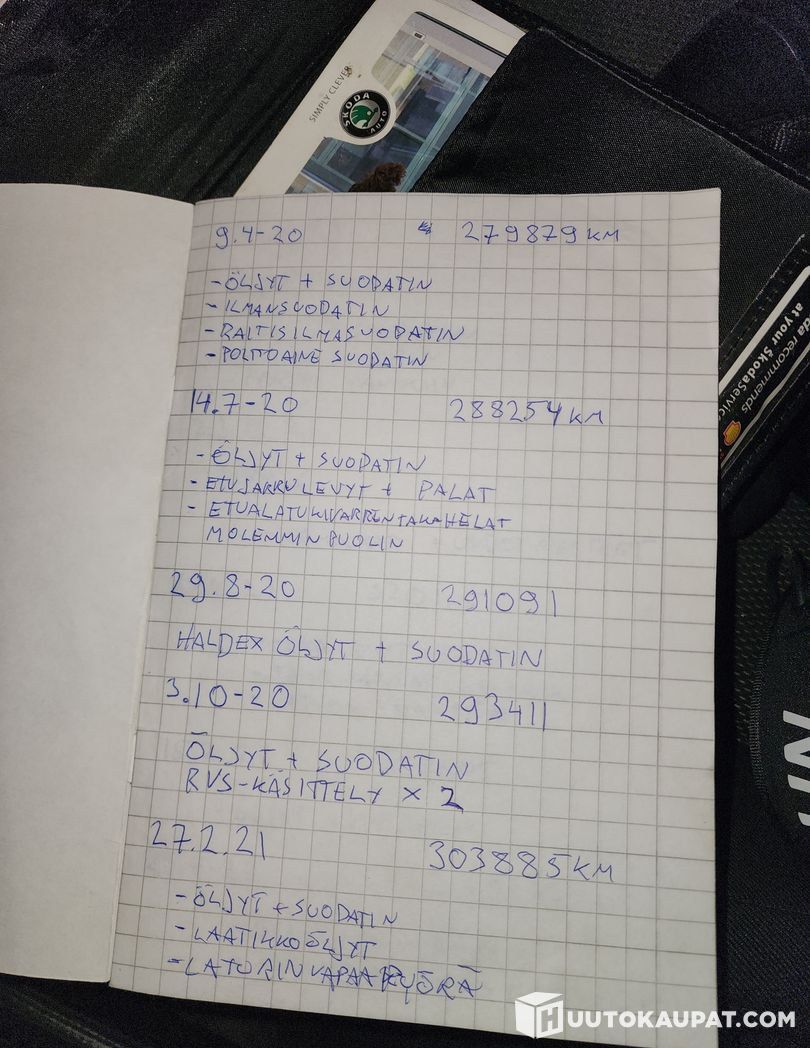 SIMPLY CLEVER
ŠKODA
AUTO
recommends
at your ŠkodaService
9.4-20 279879 KM
- ÖLJYT + SUODATIN
- ILMANSUODATIN
- RAITISILMASUODATIN
- POLTTOAINE SUODATIN
14.7-20 288254 KM
- ÖLJYT + SUODATIN
- ETUJARRULEVYT + PALAT
- ETUALATUKIVARRENTAKAHELAT
MOLEMMIN PUOLIN
29.8-20 291091
HALDEX ÖLJYT + SUODATIN
3.10-20 293411
ÖLJYT + SUODATIN
RVS-KÄSITTELY X 2
27.2.21 303885 KM
- ÖLJYT + SUODATIN
- LAATIKKOÖLJYT
- LATURIN VAPAAPYÖRÄ
HUUTOKAUPAT.COM